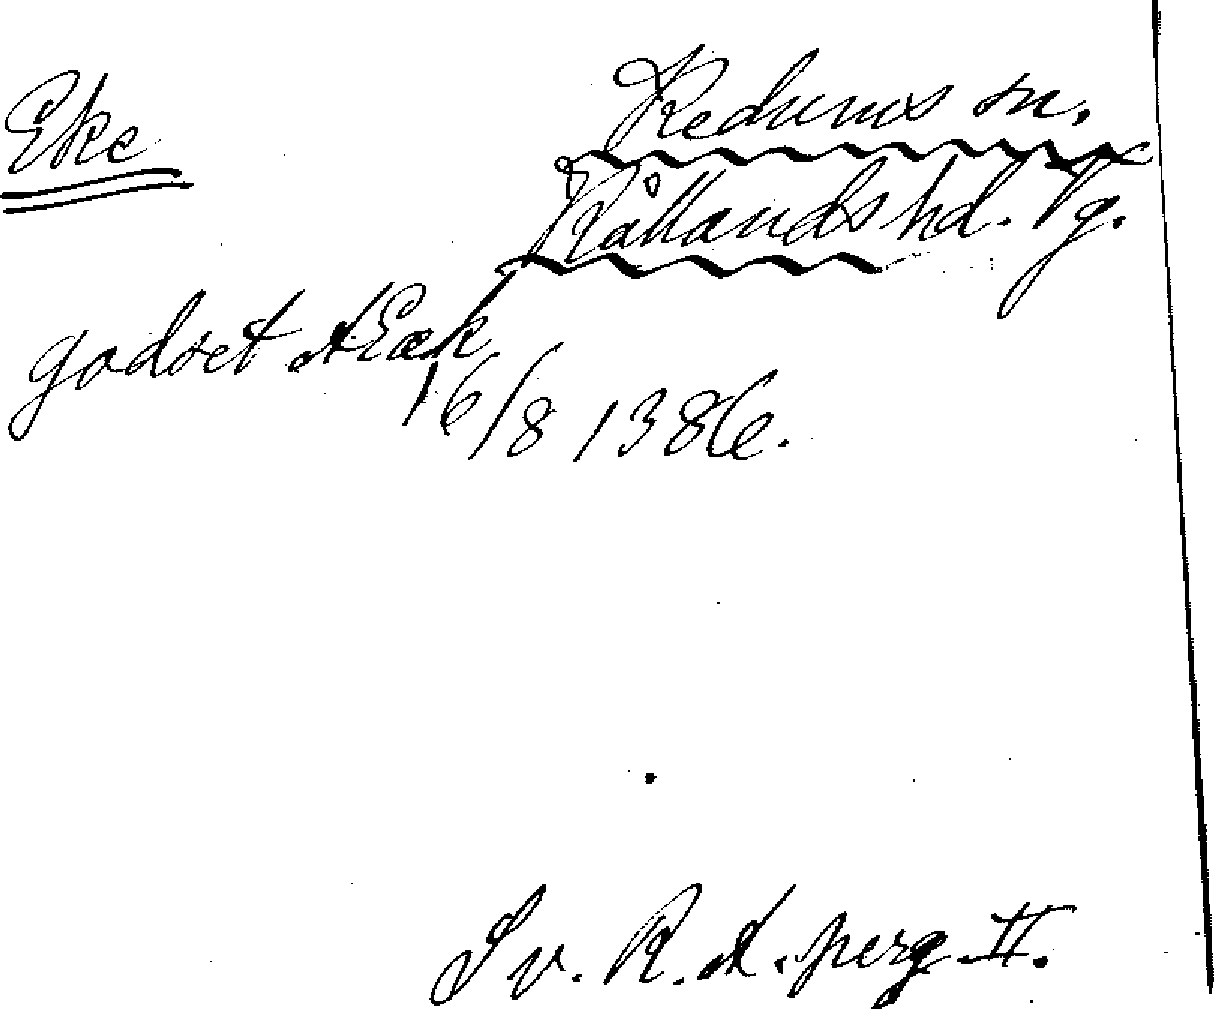 Eke
Reduns sn.
Kållands hd. Vg.
godset A Eæk
16/8 1386.
Sv. R. A. perg. II.